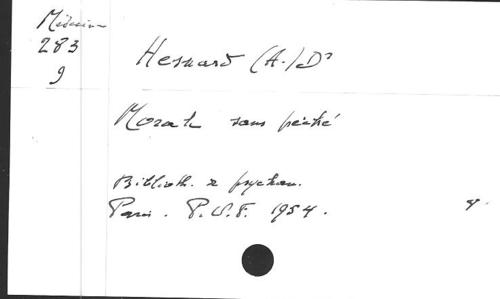 Médecine
283
9
Hesnard (A.) Dr
Morale sans péché
Biblioth. de psychan.
Paris. P.U.F. 1954.